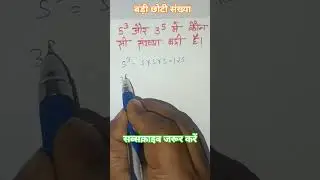 बड़ी छोटी संख्या
5³ और 3⁵ में कौन
सी संख्या बड़ी है।
5³ = 5×5×5=125
3⁵
सब्सक्राइब जरूर करें